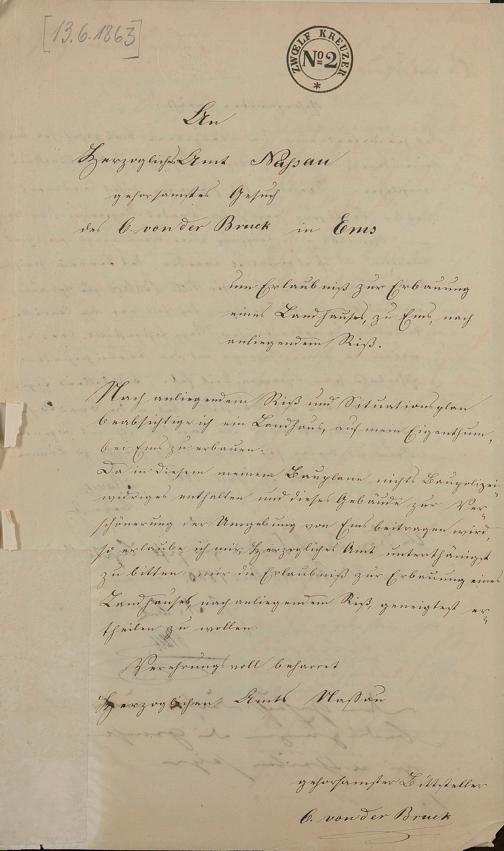 [13.6.1863]
ZWŒLF KREUZER
No 2
An
Herzogliches Amt Naßau
gehorsamstes Gesuch
des C. von der Bruck in Ems
um Erlaubniß zur Erbauung
eines Landhauses, zu Ems, nach
anliegendem Riß.
Nach anliegendem Riß und Situationsplan
beabsichtige ich ein Landhaus, auf mein Eigenthum,
bei Ems zu erbauen.
Da in diesem meinem Bauplane nichts Baupolizei-
widriges enthalten und dieses Gebäude zur Ver-
schönerung der Umgebung von Ems beitragen wird,
so erlaube ich mir, Herzogliches Amt unterthänigst
zu bitten, mir die Erlaubniß zur Erbauung eines
Landhauses, nach anliegendem Riß, geneigtest er-
theilen zu wollen
Verehrungsvoll beharret
Herzoglichen Amts Naßau
gehorsamster Bittsteller
C. von der Bruck